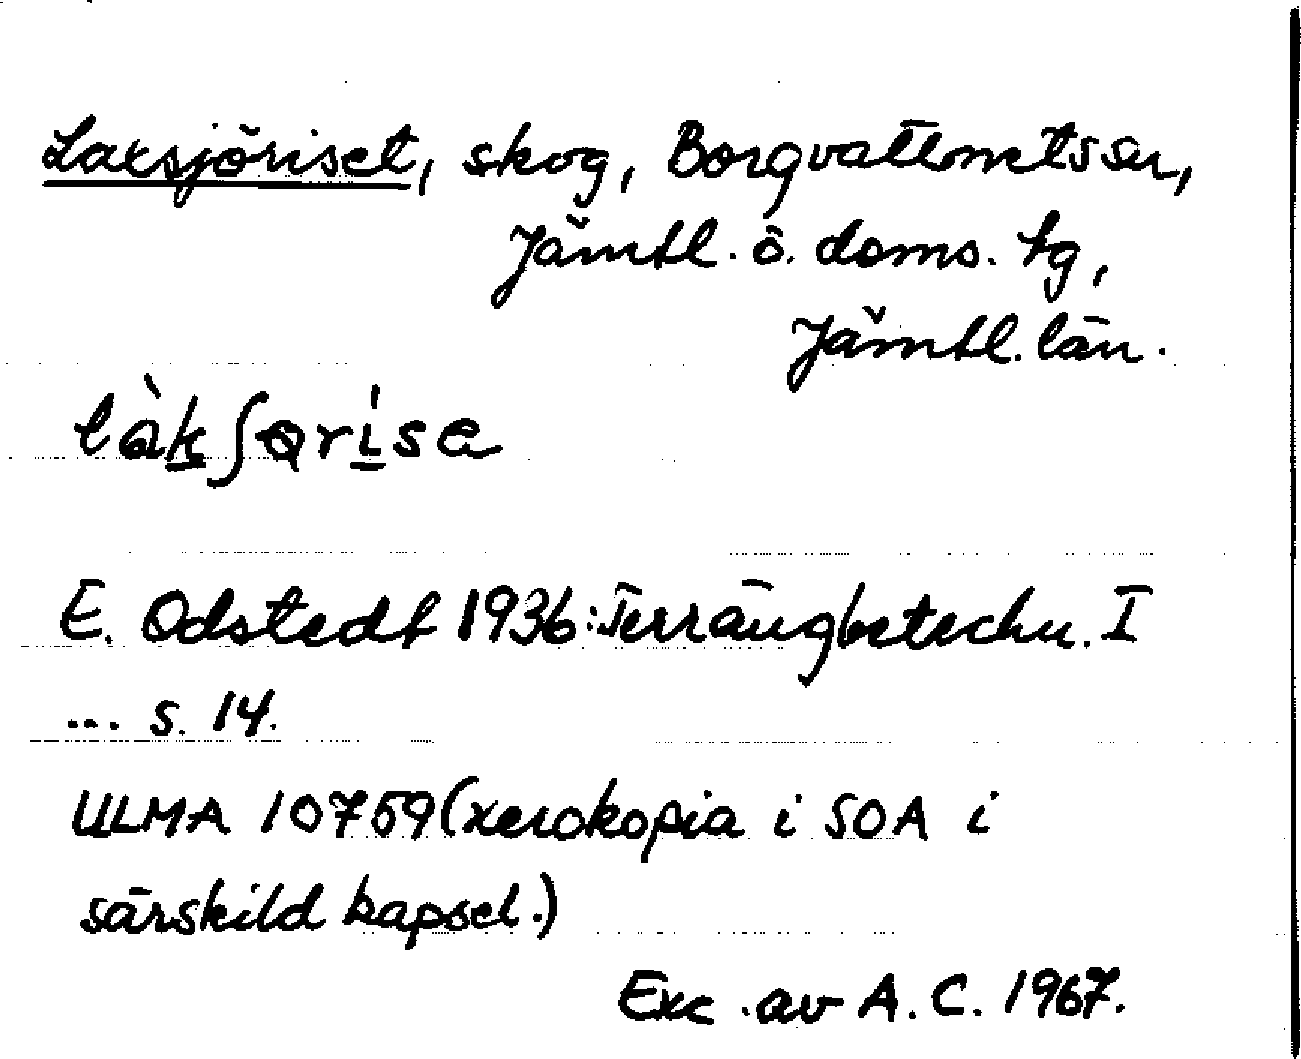 Laxsjöriset, skog, Borgvattnets sn,
Jämtl. ö. doms. tg,
Jämtl. län.
E. Odstedt 1936: Terrängbeteckn. I
... s. 14.
ULMA 10759 (xerokopia i SOA i
särskild kapsel.)
Exc. av A. C. 1967.